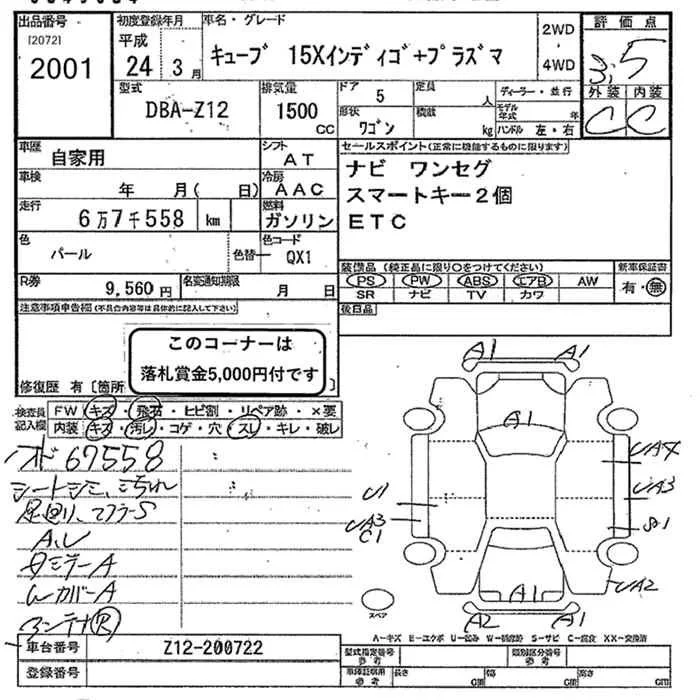 出品番号 初度登録年月 車名・グレード 2WD ・ 4WD 評価点
[2072] 平成 キューブ 15Xインディゴ+プラズマ 3.5
2001 24年 3月
型式 排気量 ドア 5 定員 人 ディーラー・並行 外装 内装
DBA-Z12 1500cc 形状 ワゴン 積載 kg モデル年式 年 ハンドル 左・右 C C
車歴 自家用 シフト AT セールスポイント(正常に機能するものに限ります)
車検 年 月( 日) 冷房 AAC ナビ ワンセグ
走行 6万7千558 km 燃料 ガソリン スマートキー2個
ETC
色 パール 色替 色コード QX1
装備品(純正品に限り○をつけてください) 新車保証書
R券 9,560円 名変通知期限 月 日 PS PW ABS エアB AW 有・無
SR ナビ TV カワ
注意事項申告欄(不具合内容等は具体的に記入して下さい) 後日品
このコーナーは
落札賞金5,000円付です
修復歴 有〔箇所
検査員記入欄 FW キズ・飛石・ヒビ割・リペア跡・×要
内装 キズ・汚レ・コゲ・穴・スレ・キレ・破レ
67558
シートシミ、汚れ
A,L
カバーA
A1 A1
A1
U1
UA3
C1
UA3
S1
UA2
A1
A2 A1
スペア
A-キズ E-エクボ U-凹み W-補修跡 S-サビ C-腐食 XX-交換済
車台番号 Z12-200722 型式指定番号 参考 類別区分番号 参考
登録番号 車庫証明用 参考 長さ cm 幅 cm 高さ cm